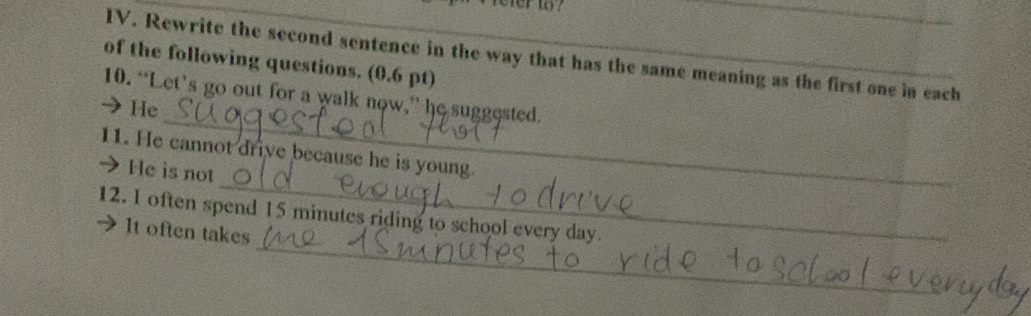 refer to?
IV. Rewrite the second sentence in the way that has the same meaning as the first one in each
of the following questions. (0.6 pt)
10. “Let's go out for a walk now,” he suggested.
→ He suggested that
11. He cannot drive because he is young.
→ He is not old enough to drive
12. I often spend 15 minutes riding to school every day.
→ It often takes me 15 minutes to ride to school everyday